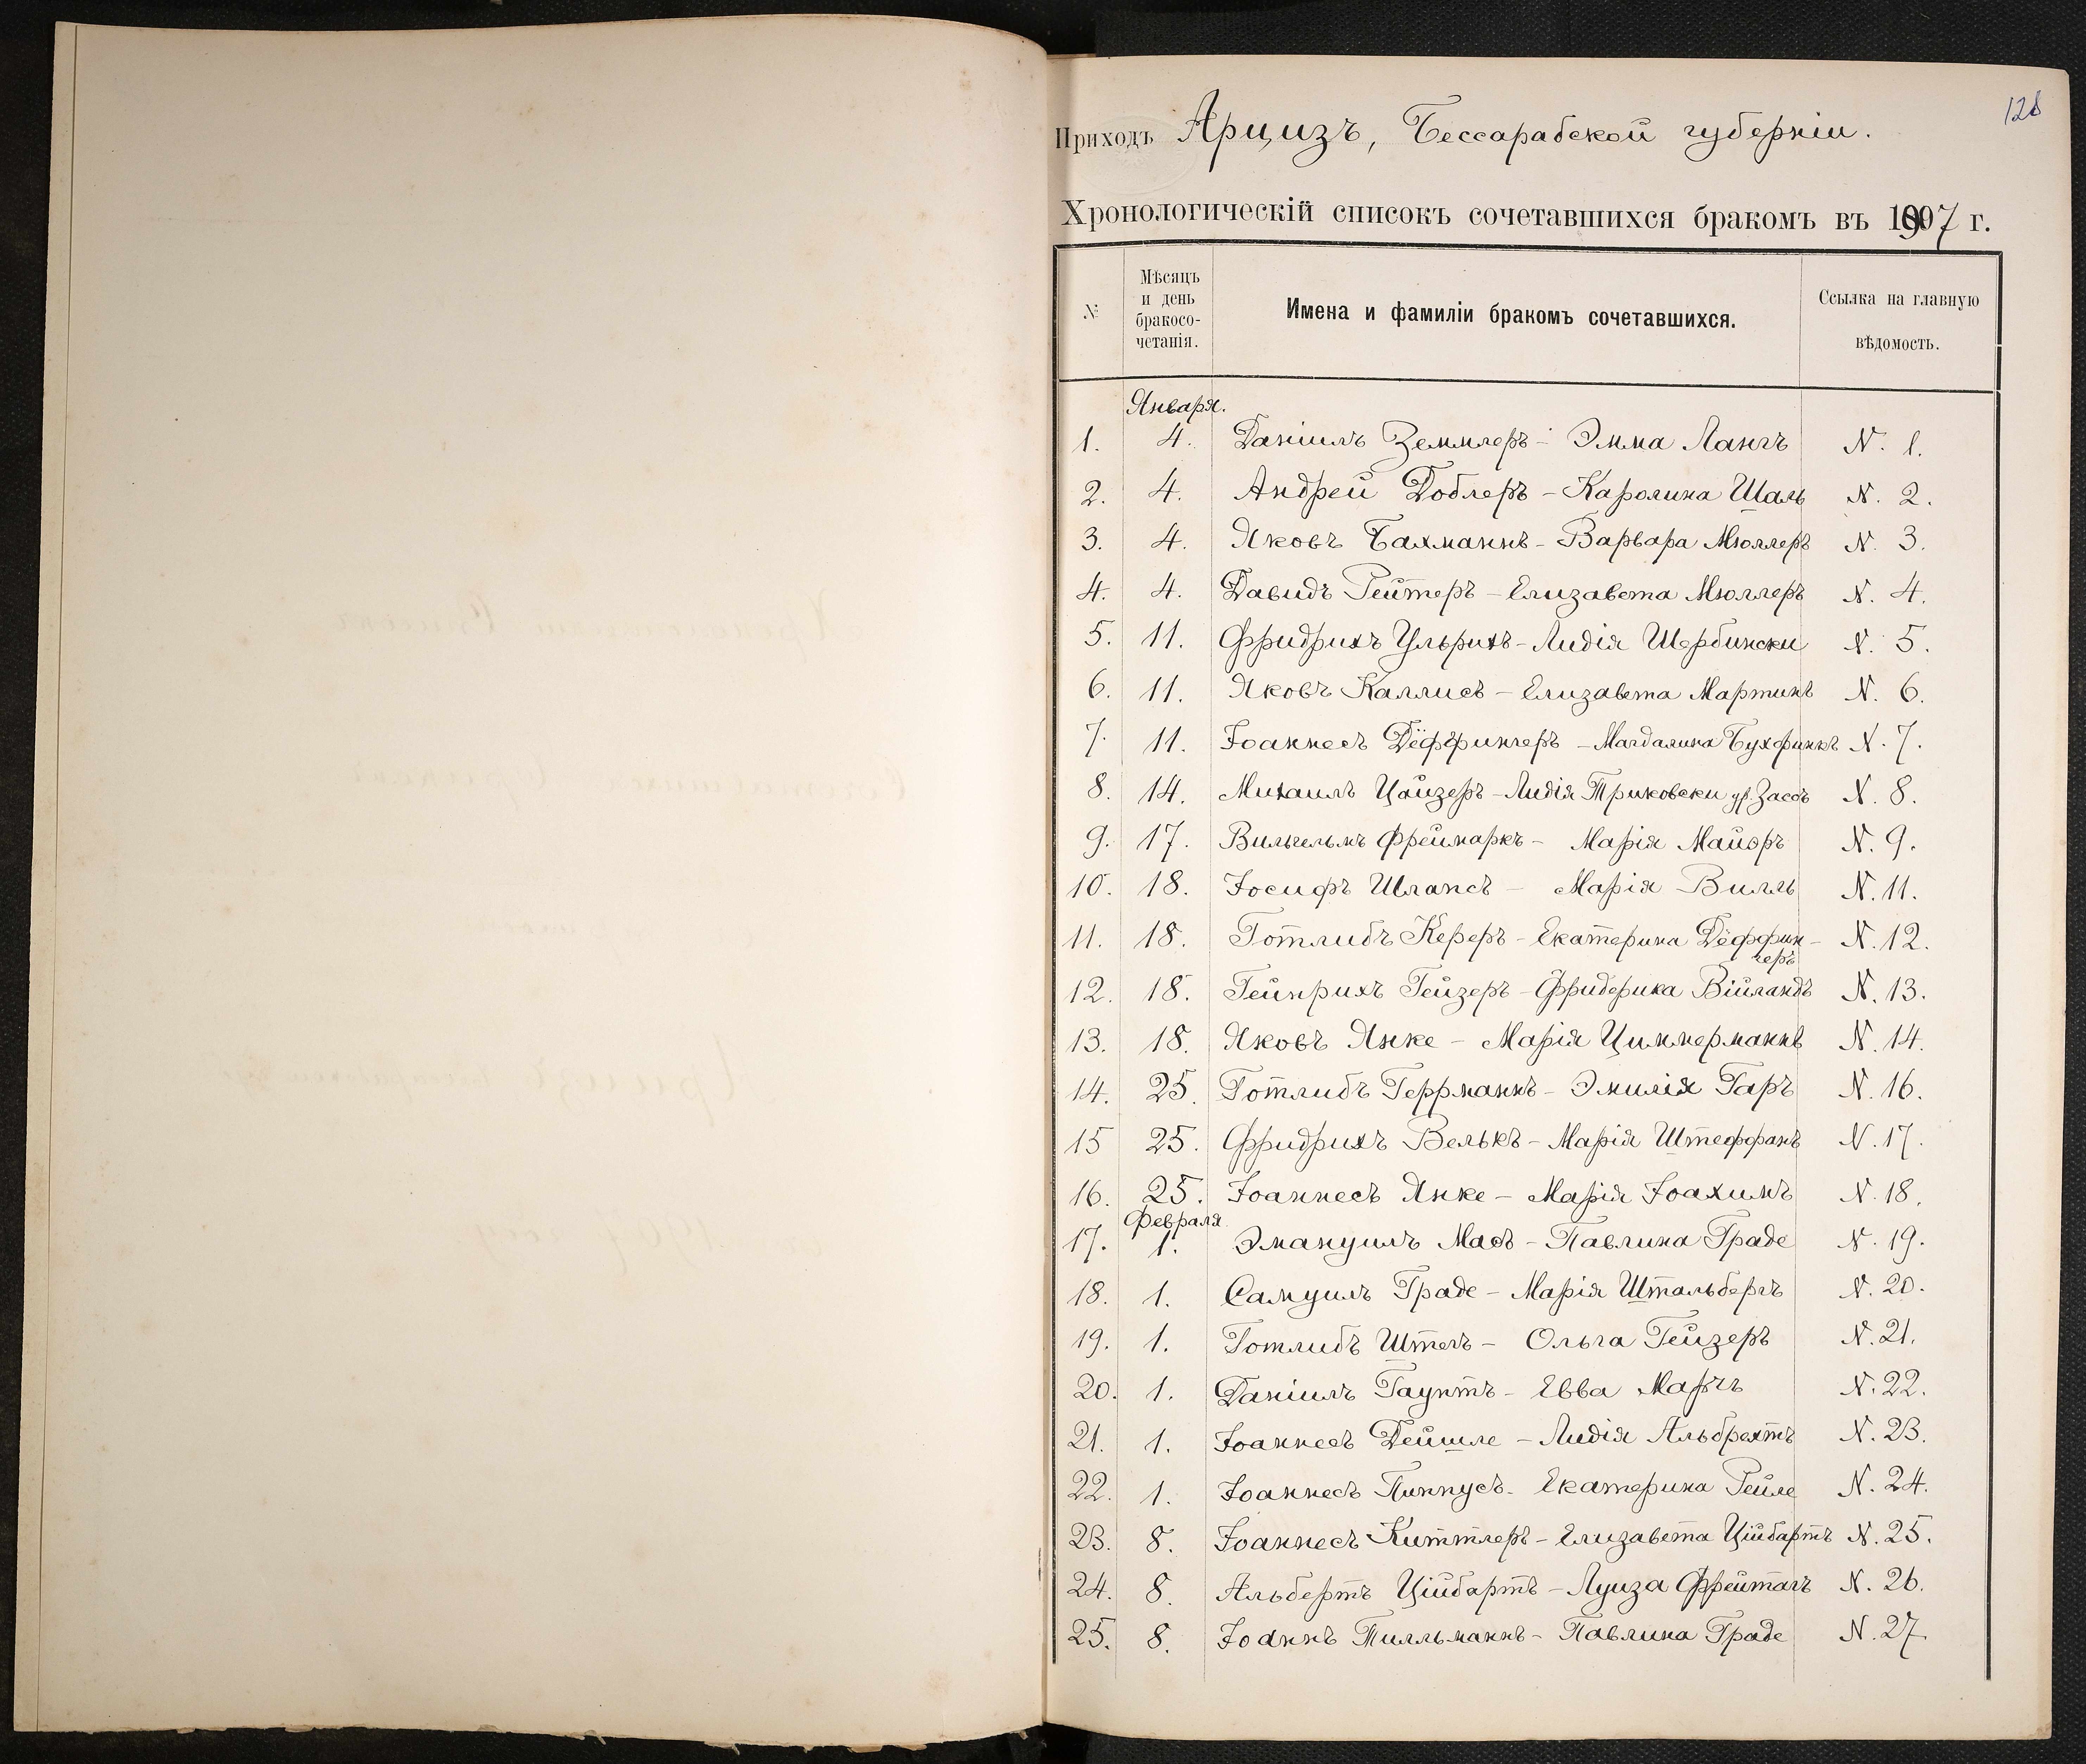 128
Приходъ Арцизъ, Бессарабской губерніи.
Хронологическій списокъ сочетавшихся бракомъ въ 1907 г.
№
Мѣсяцъ
и день
бракосо-
четанія.
Имена и фамиліи бракомъ сочетавшихся.
Ссылка на главную
вѣдомость.
Января.
1. 4. Даніилъ Земмлеръ - Эмма Лангъ N. 1.
2. 4. Андрей Доблеръ - Каролина Шаль N. 2.
3. 4. Яковъ Бахманнъ - Варвара Мюллеръ N. 3.
4. 4. Давидъ Рейтеръ - Елизавета Мюллеръ N. 4.
5. 11. Фридрихъ Ульрихъ - Лидія Шербински N. 5.
6. 11. Яковъ Каллисъ - Елизавета Мартинъ N. 6.
7. 11. Іоаннесъ Дёффингеръ - Магдалина Бухфинкъ N. 7.
8. 14. Михаилъ Цайзеръ - Лидія Триковски ур. Засъ N. 8.
9. 17. Вильгельмъ Фреймаркъ - Марія Майэръ N. 9.
10. 18. Іосифъ Шлапсъ - Марія Вилль N. 11.
11. 18. Готлибъ Кереръ - Екатерина Дёффин- N. 12.
геръ
12. 18. Гейнрихъ Гейзеръ - Фридерика Війландъ N. 13.
13. 18. Яковъ Янке - Марія Циммерманнъ N. 14.
14. 25. Готлибъ Геррманнъ - Эмилія Гаръ N. 16.
15 25. Фридрихъ Велькъ - Марія Штеффанъ N. 17.
16. 25. Іоаннесъ Янке - Марія Іоахимъ N. 18.
Февраля
17. 1. Эмануилъ Масъ - Павлина Граде N. 19.
18. 1. Самуилъ Граде - Марія Штальбергъ N. 20.
19. 1. Готлибъ Штегъ - Ольга Гейзеръ N. 21.
20. 1. Даніилъ Гауптъ - Евва Маргъ N. 22.
21. 1. Іоаннесъ Дейшле - Лидія Альбрехтъ N. 23.
22. 1. Іоаннесъ Пиппусъ - Екатерина Рейле N. 24.
23. 8. Іоаннесъ Киттлеръ - Елизавета Ційбартъ N. 25.
24. 8. Альбертъ Ційбартъ - Луиза Фрейтагъ N. 26.
25. 8. Іоаннъ Тилльманнъ - Павлина Граде N. 27